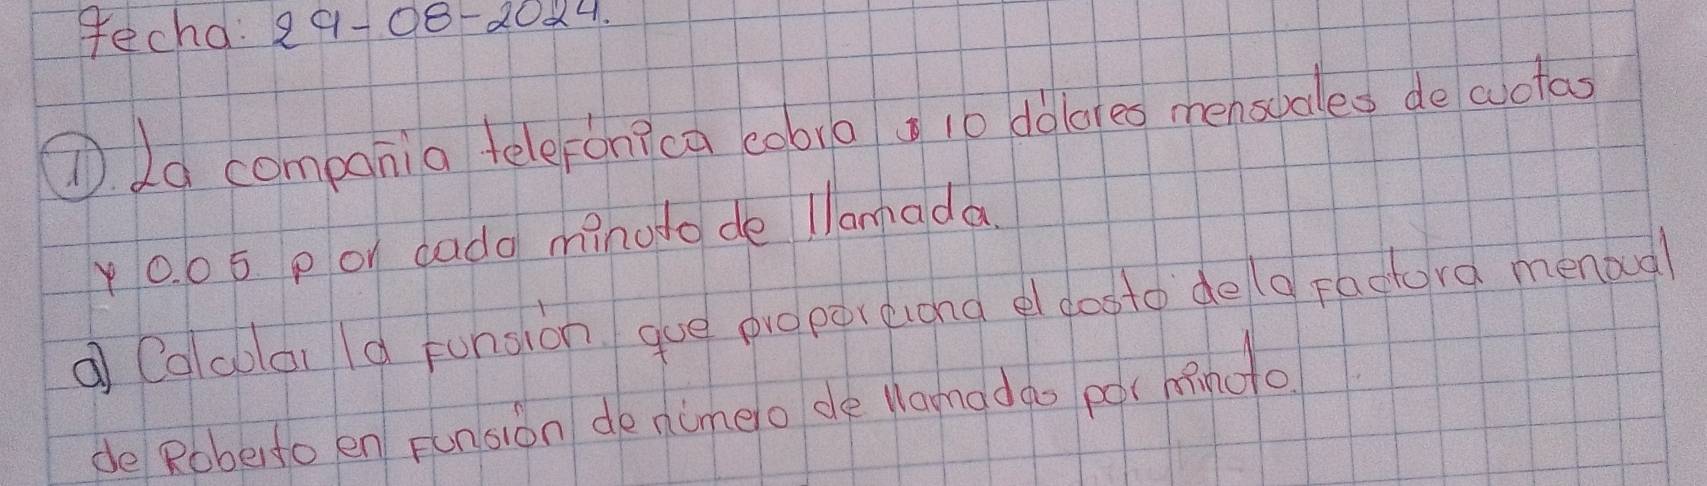 Fecha: 29-08-2024.
①. La compañia telefónica cobra 10 dólares mensuales de cuotas
y 0.05 por cada minuto de llamada.
a) Calcular la funsión que proporciona el costo de la factura mensual
de Roberto en funsión de número de llamadas por minuto.